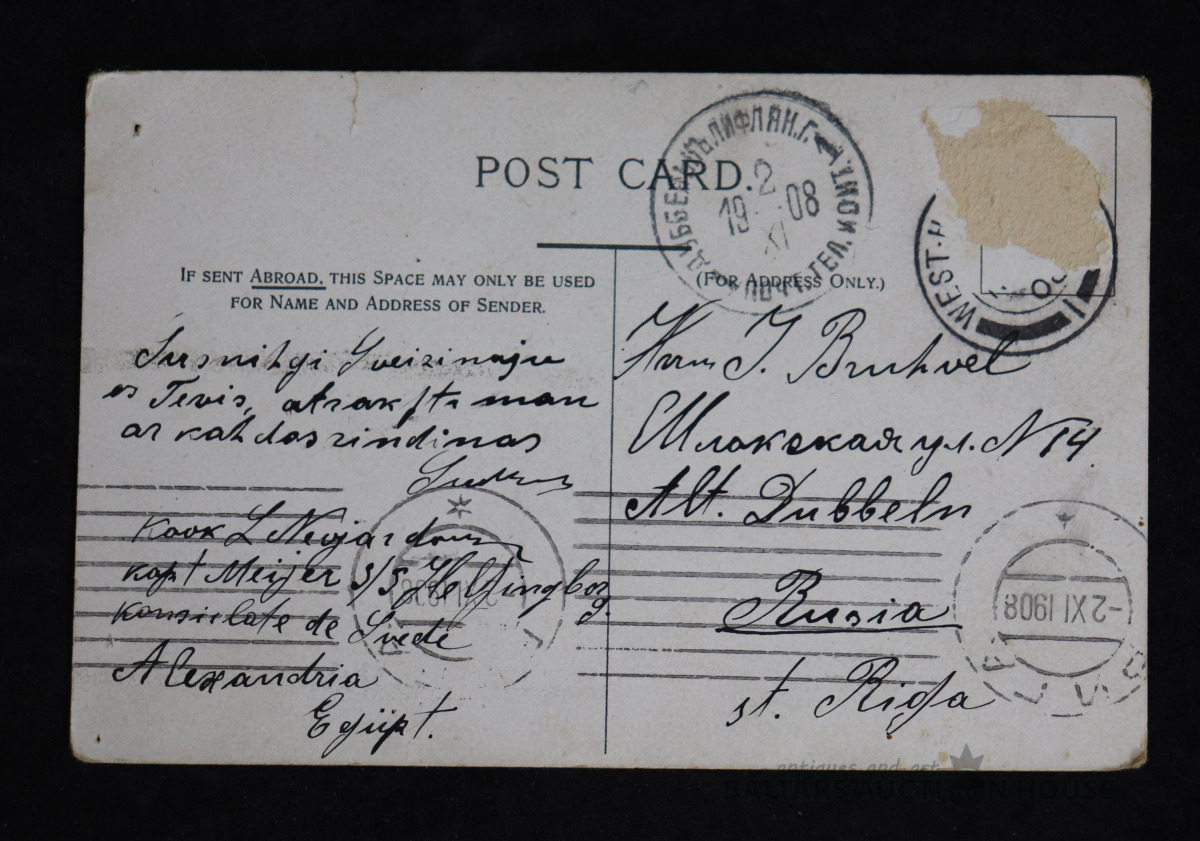 POST CARD.
IF SENT ABROAD, THIS SPACE MAY ONLY BE USED
FOR NAME AND ADDRESS OF SENDER.
(FOR ADDRESS ONLY.)
ДУББЕЛЬНЪ ЛИФЛЯН. Г.
ПОЧТ. ТЕЛ.
2
19 08
XI
WEST-H
Sirsnihgi Sveizinaju
es Tevis, atrakſti man
ar kahdas rindinas
Kook L Neijard
kapt Meijer S/S Helsingborg
konsielate de Svede
Alexandria
Egüpt.
Herrn J. Bruhvel
Шлокская ул. N 14
Alt. Dubbeln
Rusia
st. Riga
-2 XI 1908
antiques and art
BALTARS AUCTION HOUSE